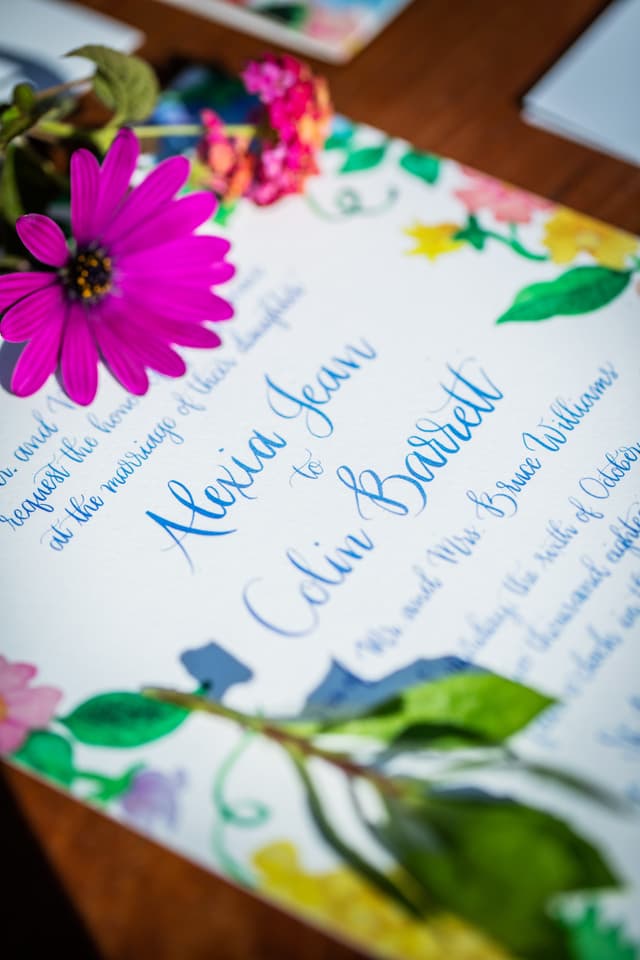 r. and
request the hono
at the marriage of their daughter
Alexia Jean
to
Colin Barrett
Mr. and Mrs. Bruce Williams
day the sixth of October
thousand eight
clock in